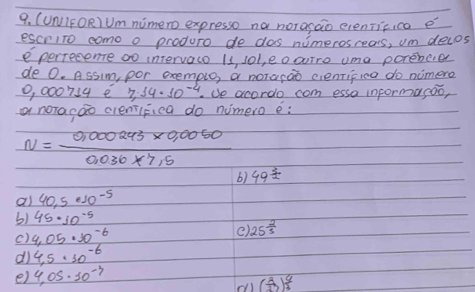 9. (UNIFOR) Um número expresso na notação científica é
escrito como o produto de dos números reais, um delos
é pertecente ao intervalo [1, 10[, e o outro uma potência
de 0. Assim, por exemplo, a notação científica do número
0,000714 é 7,14·10⁻⁴. De acordo com essa informação,
a notação científica do número é:
N = 0,000243 × 0,0050
0,036 × 7,5
b) 49
a) 40,5 · 10⁻⁵
b) 45 · 10⁻⁵
c) 4,05 · 10⁻⁶
c) 25
d) 4,5 · 10⁻⁶
e) 4,05 · 10⁻⁷